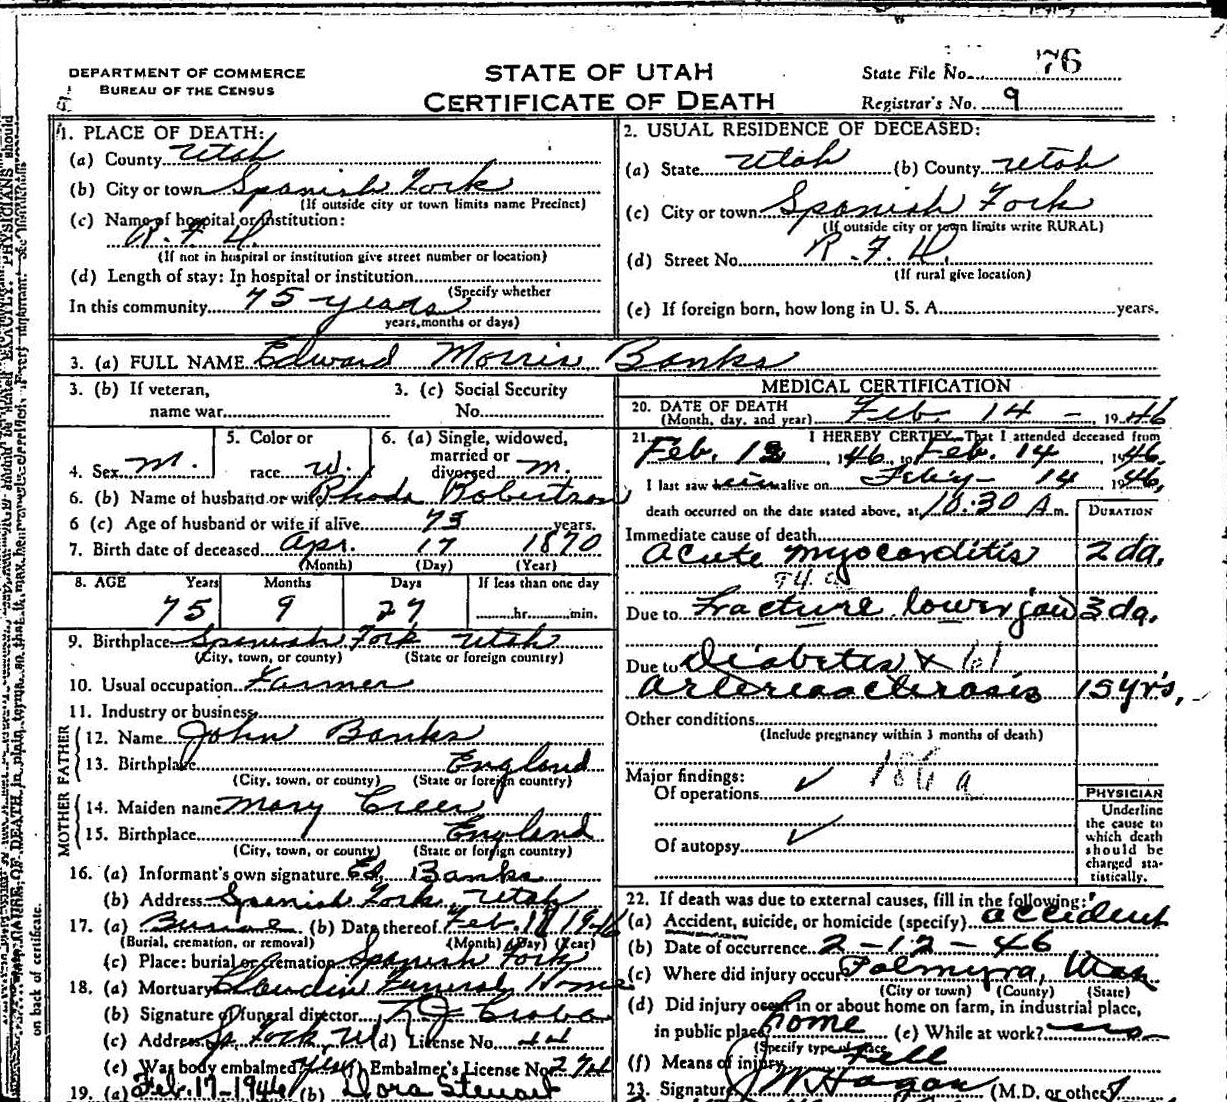 DEPARTMENT OF COMMERCE
BUREAU OF THE CENSUS
STATE OF UTAH
CERTIFICATE OF DEATH
State File No. 76
Registrar's No. 9
1. PLACE OF DEATH:
(a) County Utah
(b) City or town Spanish Fork
(If outside city or town limits name Precinct)
(c) Name of hospital or institution:
R. F. D.
(If not in hospital or institution give street number or location)
(d) Length of stay: In hospital or institution
(Specify whether
In this community 75 years
years, months or days)
2. USUAL RESIDENCE OF DECEASED:
(a) State Utah (b) County Utah
(c) City or town Spanish Fork
(If outside city or town limits write RURAL)
(d) Street No. R. F. D.
(If rural give location)
(e) If foreign born, how long in U. S. A. years.
3. (a) FULL NAME Edward Morris Banks
3. (b) If veteran,
name war
3. (c) Social Security
No.
4. Sex m.
5. Color or
race w.
6. (a) Single, widowed,
married or
divorced m.
6. (b) Name of husband or wife Rhoda Robertson
6 (c) Age of husband or wife if alive 73 years.
7. Birth date of deceased Apr. 17 1870
(Month) (Day) (Year)
8. AGE Years Months Days If less than one day
75 9 27 hr. min.
9. Birthplace Spanish Fork Utah
(City, town, or county) (State or foreign country)
10. Usual occupation Farmer
11. Industry or business
FATHER
12. Name John Banks
13. Birthplace England
(City, town, or county) (State or foreign country)
MOTHER
14. Maiden name Mary Creer
15. Birthplace England
(City, town, or county) (State or foreign country)
16. (a) Informant's own signature Ed. Banks
(b) Address Spanish Fork, Utah
17. (a) Burial (b) Date thereof Feb. 18 1946
(Burial, cremation, or removal) (Month) (Day) (Year)
(c) Place: burial or cremation Spanish Fork
18. (a) Mortuary Claudin Funeral Home
(b) Signature of funeral director
(c) Address Sp. Fork, Ut (d) License No. 44
(e) Was body embalmed Yes (f) Embalmer's License No. 274
19. (a) Feb. 17-1946 (b) Dora Stewart
MEDICAL CERTIFICATION
20. DATE OF DEATH
(Month, day, and year) Feb. 14 - 1946
21. I HEREBY CERTIFY, That I attended deceased from
Feb. 13 1946, to Feb. 14 1946,
I last saw him alive on Feby - 14 1946,
death occurred on the date stated above, at 10:30 A.m.
DURATION
Immediate cause of death
Acute myocarditis 2 da.
94
Due to Fracture lower jaw 3 da.
Due to Diabetes & 61
Arteriosclerosis 15 yrs.
Other conditions
(Include pregnancy within 3 months of death)
Major findings:
186 a
Of operations ✓
Of autopsy ✓
PHYSICIAN
Underline
the cause to
which death
should be
charged sta-
tistically.
22. If death was due to external causes, fill in the following:
(a) Accident, suicide, or homicide (specify) accident
(b) Date of occurrence 2-12-46
(c) Where did injury occur Palmyra, Utah
(City or town) (County) (State)
(d) Did injury occur in or about home on farm, in industrial place,
in public place home (e) While at work? no
(Specify type of place
(f) Means of injury Fell
23. Signature J W Hagan (M.D. or other)
on back of certificate.